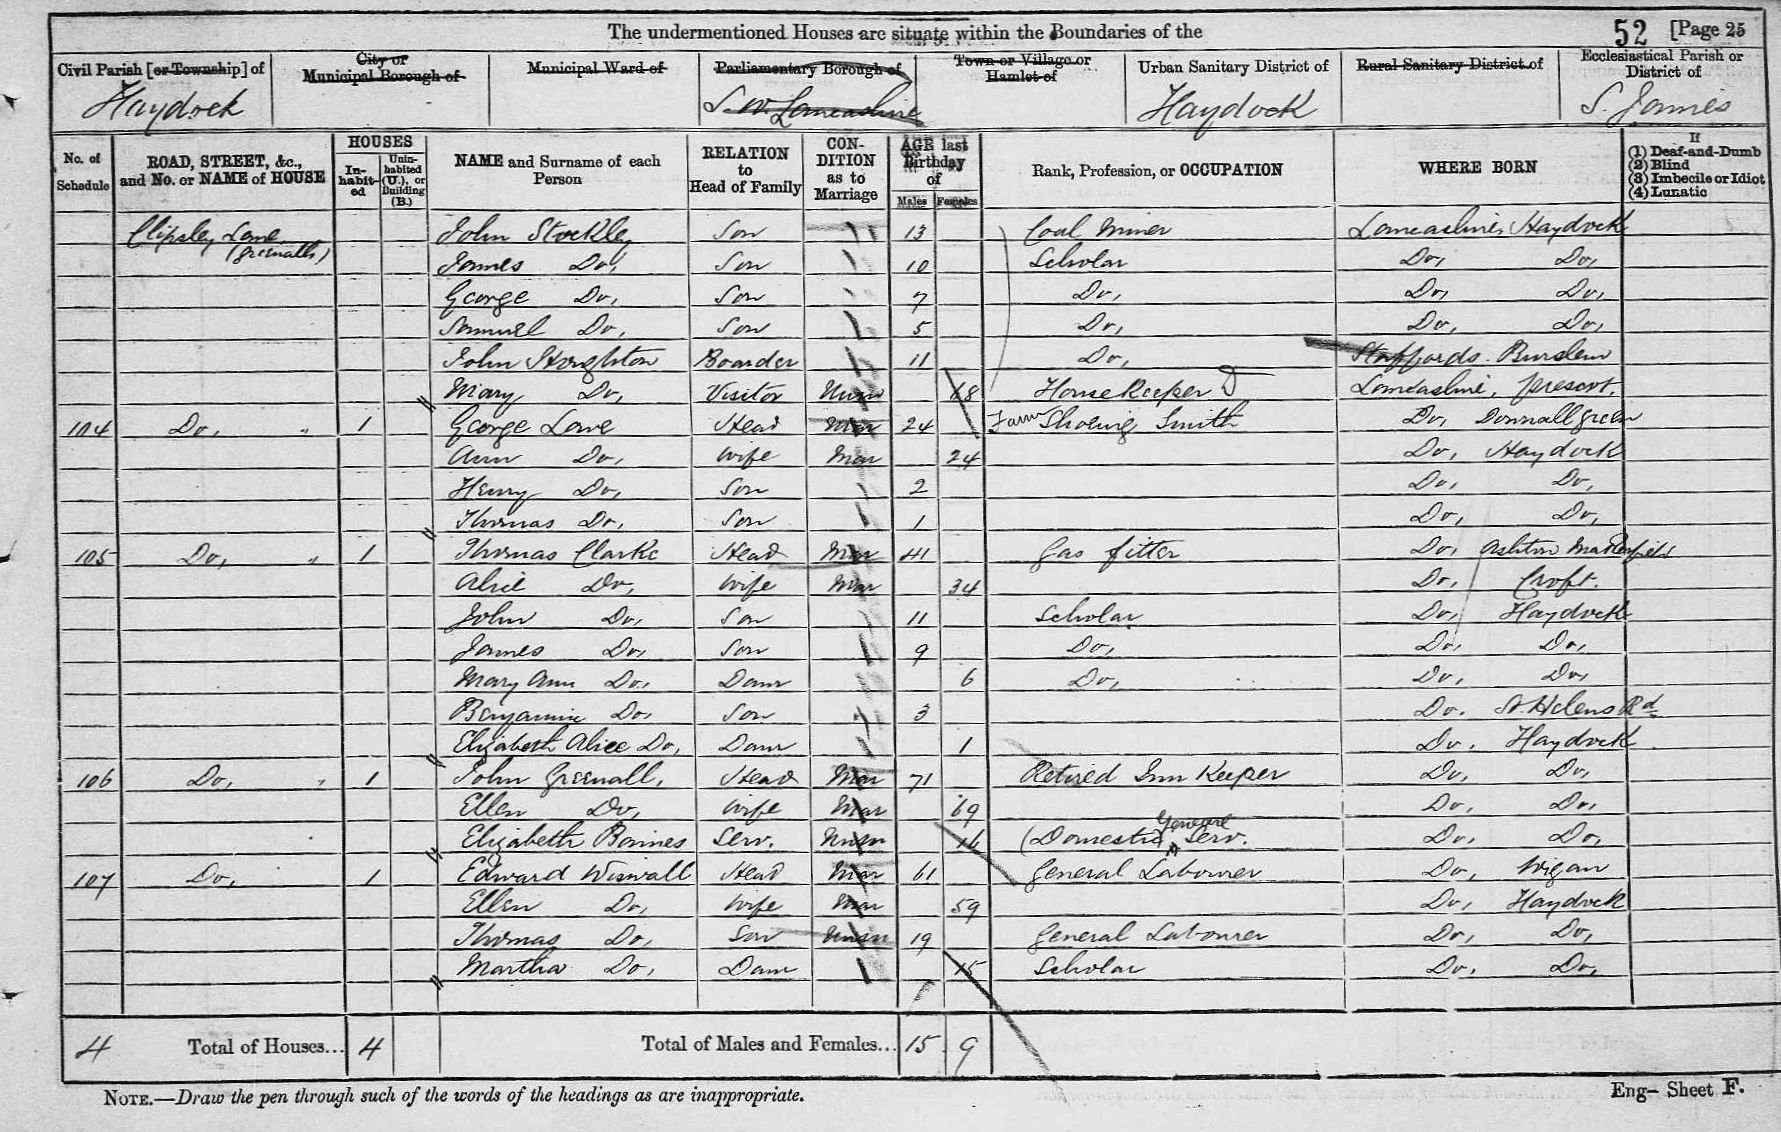 The undermentioned Houses are situate within the Boundaries of the 52 [Page 25
Civil Parish [or Township] of City or Municipal Borough of Municipal Ward of Parliamentary Borough of Town or Village or Hamlet of Urban Sanitary District of Rural Sanitary District of Ecclesiastical Parish or District of
Haydock S. W. Lancashire Haydock S. James
No. of Schedule ROAD, STREET, &c., and No. or NAME of HOUSE HOUSES In-habit-ed Unin-habited (U.), or Building (B.) NAME and Surname of each Person RELATION to Head of Family CON-DITION as to Marriage AGE last Birthday of Males Females Rank, Profession, or OCCUPATION WHERE BORN If (1) Deaf-and-Dumb (2) Blind (3) Imbecile or Idiot (4) Lunatic
Clipsley Lane John Stockley Son 13 Coal Miner Lancashire, Haydock
(Greenalls) James Do, Son 10 Scholar Do, Do,
George Do, Son 7 Do, Do, Do,
Samuel Do, Son 5 Do, Do, Do,
John Houghton Boarder 11 Do, Staffords. Burslem
Mary Do, Visitor Unm 68 House Keeper D Lancashire, Prescot.
104 Do, " 1 George Lowe Head Mar 24 Farm Shoeing Smith Do, Downall Green
Ann Do, Wife Mar 24 Do, Haydock
Henry Do, Son 2 Do, Do,
Thomas Do, Son 1 Do, Do,
105 Do, " 1 Thomas Clarke Head Mar 41 Gas fitter Do, Ashton Makerfield
Alice Do, Wife Mar 34 Do, Croft.
John Do, Son 11 Scholar Do, Haydock
James Do, Son 9 Do, Do, Do,
Mary Ann Do, Daur 6 Do, Do, Do,
Benjamin Do, Son 3 Do. St. Helens Rd
Elizabeth Alice Do, Daur 1 Do. Haydock
106 Do, " 1 John Greenall, Head Mar 71 Retired Inn Keeper Do, Do,
Ellen Do, Wife Mar 69 Do, Do,
Elizabeth Baines Serv. Unm 16 (Domestic General Serv. Do, Do,
107 Do, 1 Edward Wiswall Head Mar 61 General Labourer Do, Wigan
Ellen Do, Wife Mar 59 Do, Haydock
Thomas Do, Son Unm 19 General Labourer Do, Do,
Martha Do, Daur 15 Scholar Do, Do,
4 Total of Houses... 4 Total of Males and Females... 15 9
NOTE.—Draw the pen through such of the words of the headings as are inappropriate. Eng— Sheet F.